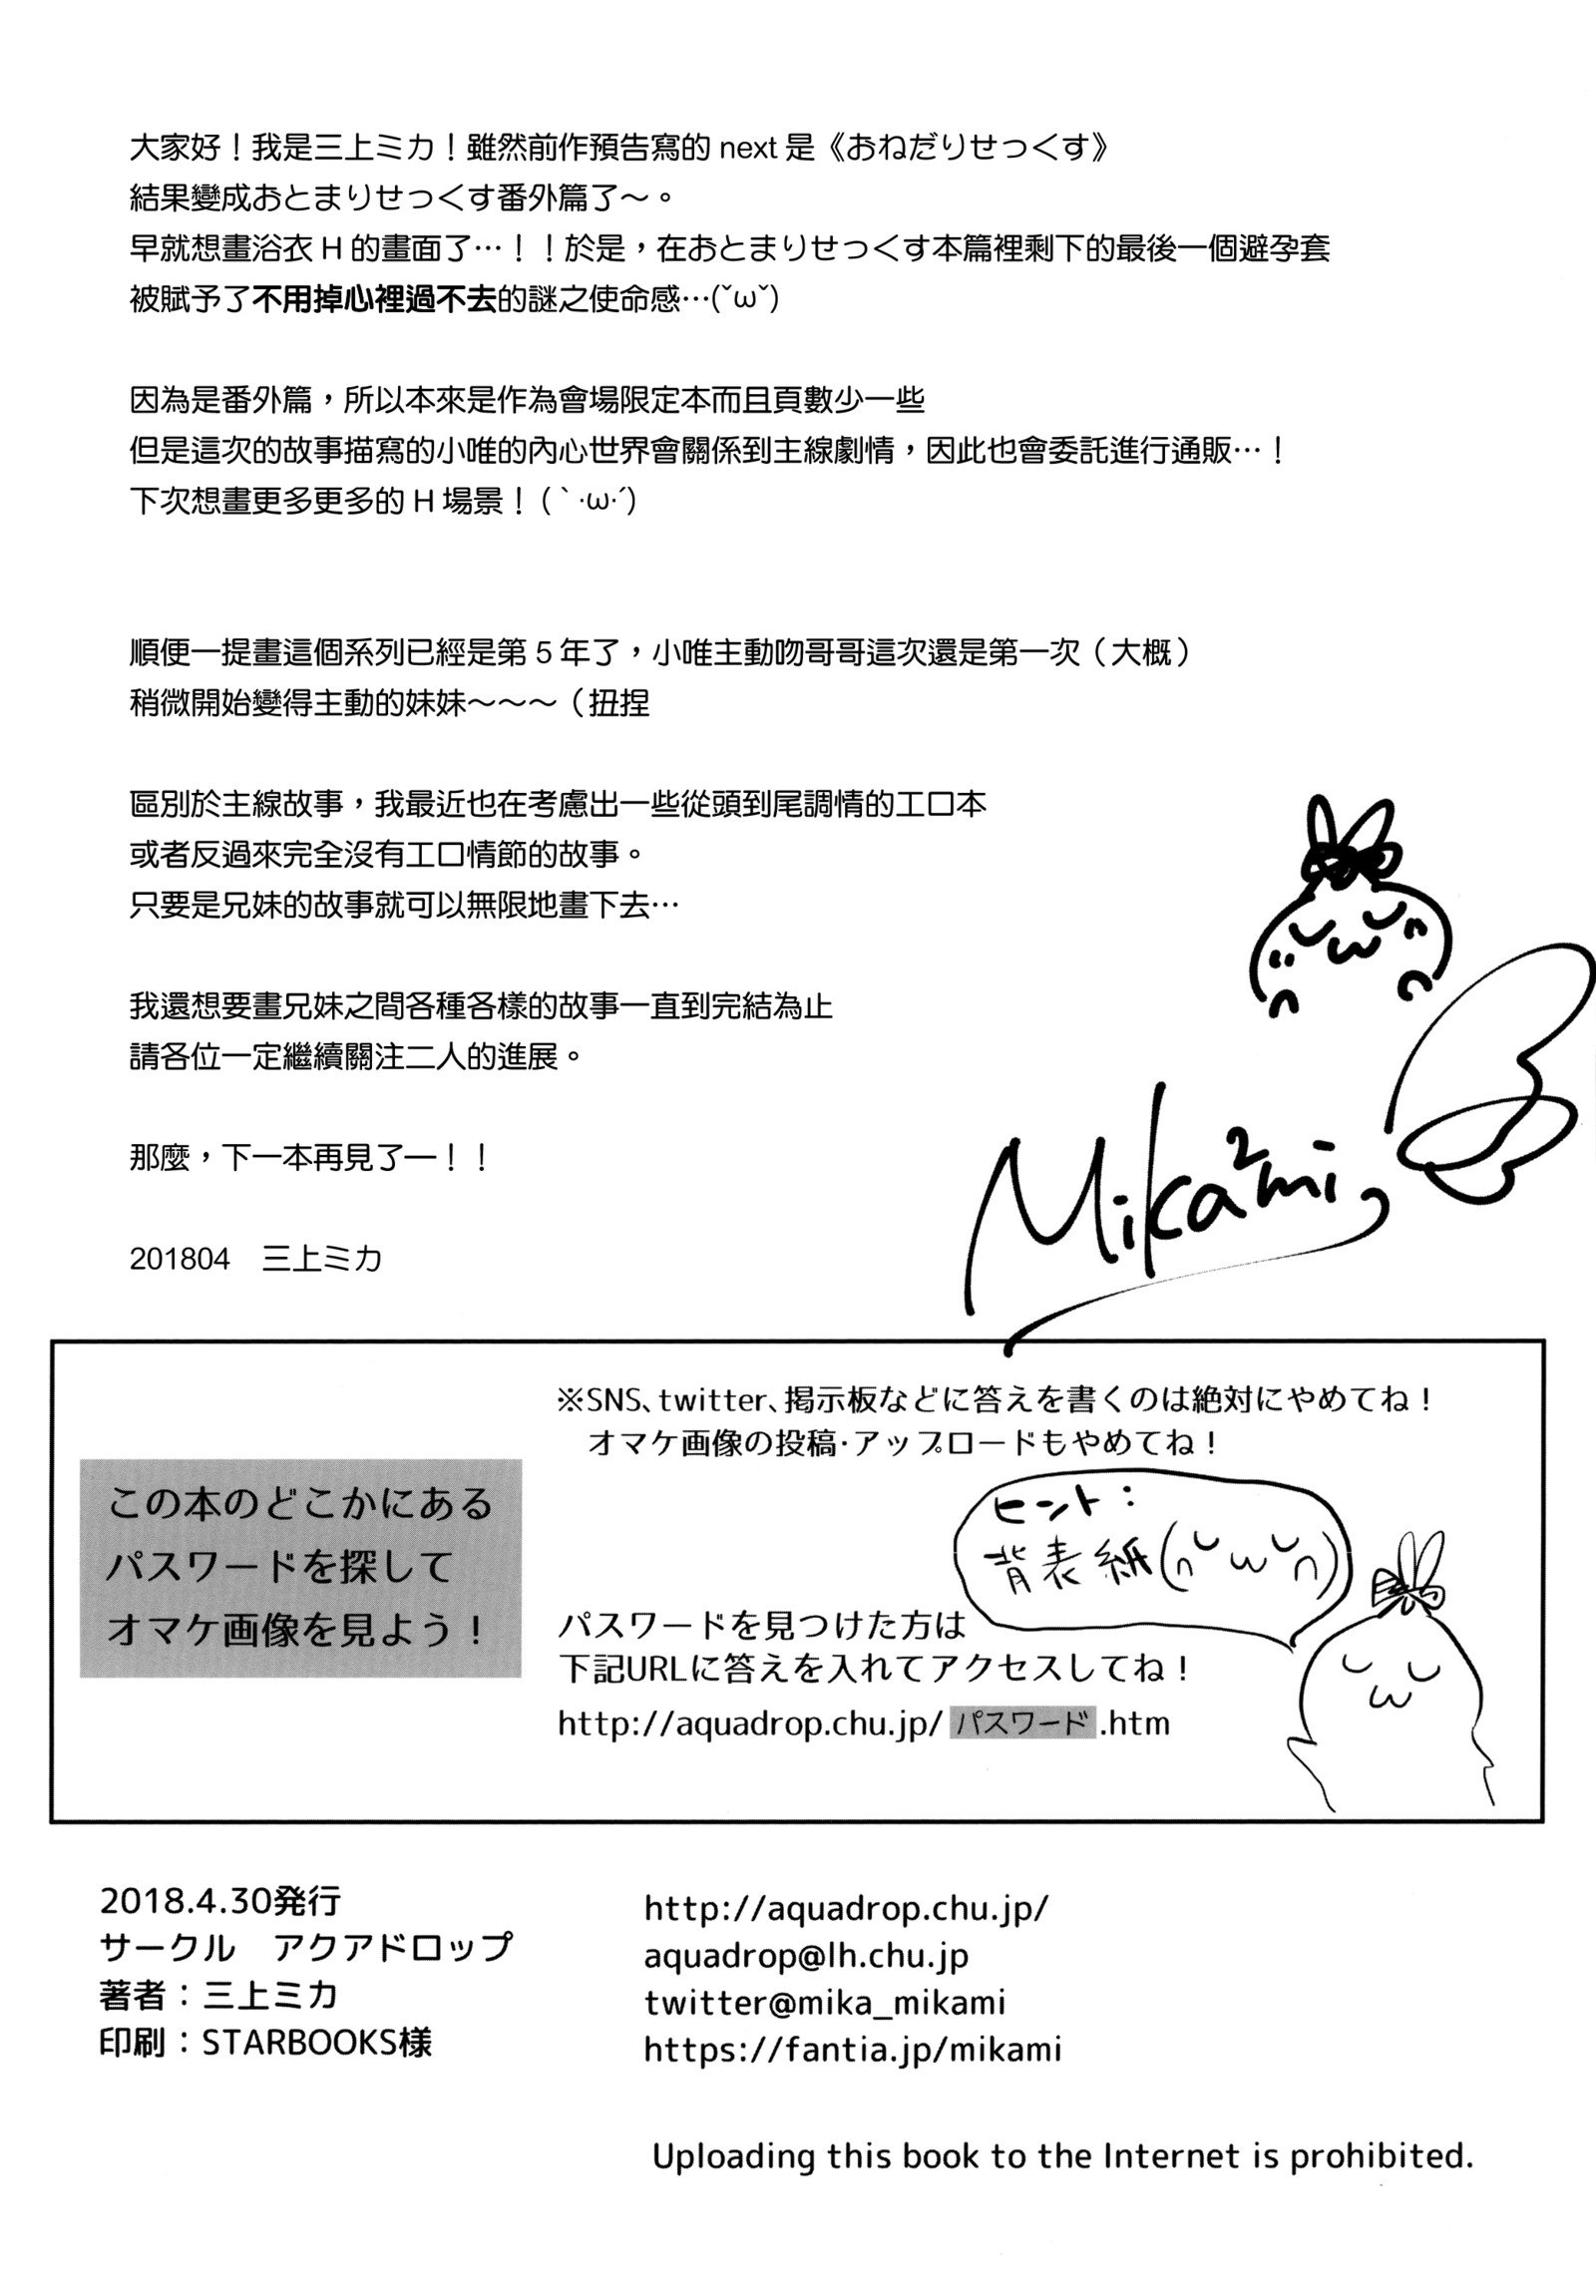 大家好！我是三上ミカ！雖然前作預告寫的 next 是《おねだりせっくす》
結果變成おとまりせっくす番外篇了～。
早就想畫浴衣 H 的畫面了…！！於是，在おとまりせっくす本篇裡剩下的最後一個避孕套
被賦予了不用掉心裡過不去的謎之使命感…(˘ω˘)
因為是番外篇，所以本來是作為會場限定本而且頁數少一些
但是這次的故事描寫的小唯的內心世界會關係到主線劇情，因此也會委託進行通販…！
下次想畫更多更多的 H 場景！(｀·ω·´)
順便一提畫這個系列已經是第 5 年了，小唯主動吻哥哥這次還是第一次（大概）
稍微開始變得主動的妹妹～～～（扭捏
區別於主線故事，我最近也在考慮出一些從頭到尾調情的工口本
或者反過來完全沒有工口情節的故事。
只要是兄妹的故事就可以無限地畫下去…
我還想要畫兄妹之間各種各樣的故事一直到完結為止
請各位一定繼續關注二人的進展。
那麼，下一本再見了一！！
Mika²mi
201804　三上ミカ
※SNS、twitter、掲示板などに答えを書くのは絶対にやめてね！
オマケ画像の投稿･アップロードもやめてね！
この本のどこかにある
パスワードを探して
オマケ画像を見よう！
ヒント：
背表紙(∩˘ω˘∩)
パスワードを見つけた方は
下記URLに答えを入れてアクセスしてね！
http://aquadrop.chu.jp/ パスワード .htm
2018.4.30発行
サークル　アクアドロップ
著者：三上ミカ
印刷：STARBOOKS様
http://aquadrop.chu.jp/
aquadrop@lh.chu.jp
twitter@mika_mikami
https://fantia.jp/mikami
Uploading this book to the Internet is prohibited.